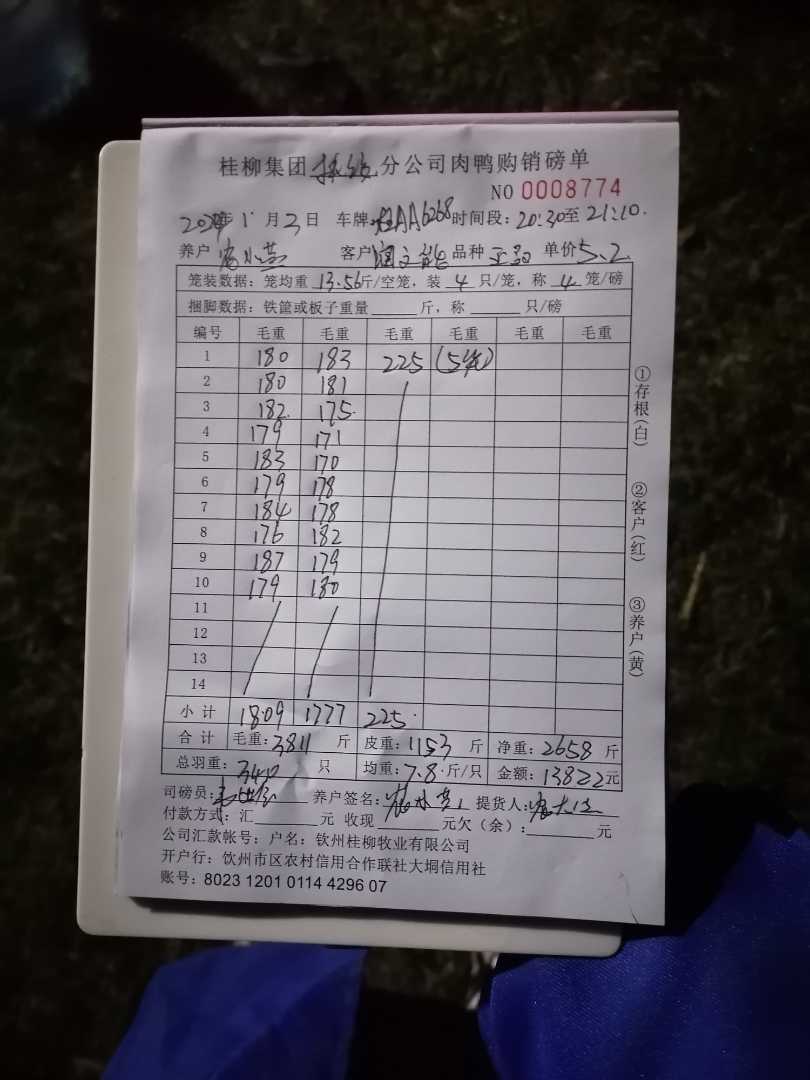 桂柳集团 分公司肉鸭购销磅单
NO 0008774
年 1 月 3 日 车牌: AA6268 时间段: 20:30至 21:10.
养户 客户 品种 正品 单价 5.2
笼装数据: 笼均重 13.56 斤/空笼, 装 4 只/笼, 称 4 笼/磅
捆脚数据: 铁筐或板子重量 斤, 称 只/磅
编号 毛重 毛重 毛重 毛重 毛重 毛重
1 180 183 225 (5笼)
2 180 181
3 182 175
4 179 171
5 183 170
6 179 178
7 184 178
8 176 182
9 187 179
10 179 180
11
12
13
14
小计 1809 1777 225
合计 毛重: 3811 斤 皮重: 1153 斤 净重: 2658 斤
总羽重: 340 只 均重: 7.8 斤/只 金额: 13822 元
司磅员: 养户签名: 提货人:
付款方式: 汇 元 收现 元欠(余): 元
公司汇款帐号: 户名: 钦州桂柳牧业有限公司
开户行: 钦州市区农村信用合作联社大垌信用社
账号: 8023 1201 0114 4296 07
①存根(白)
②客户(红)
③养户(黄)